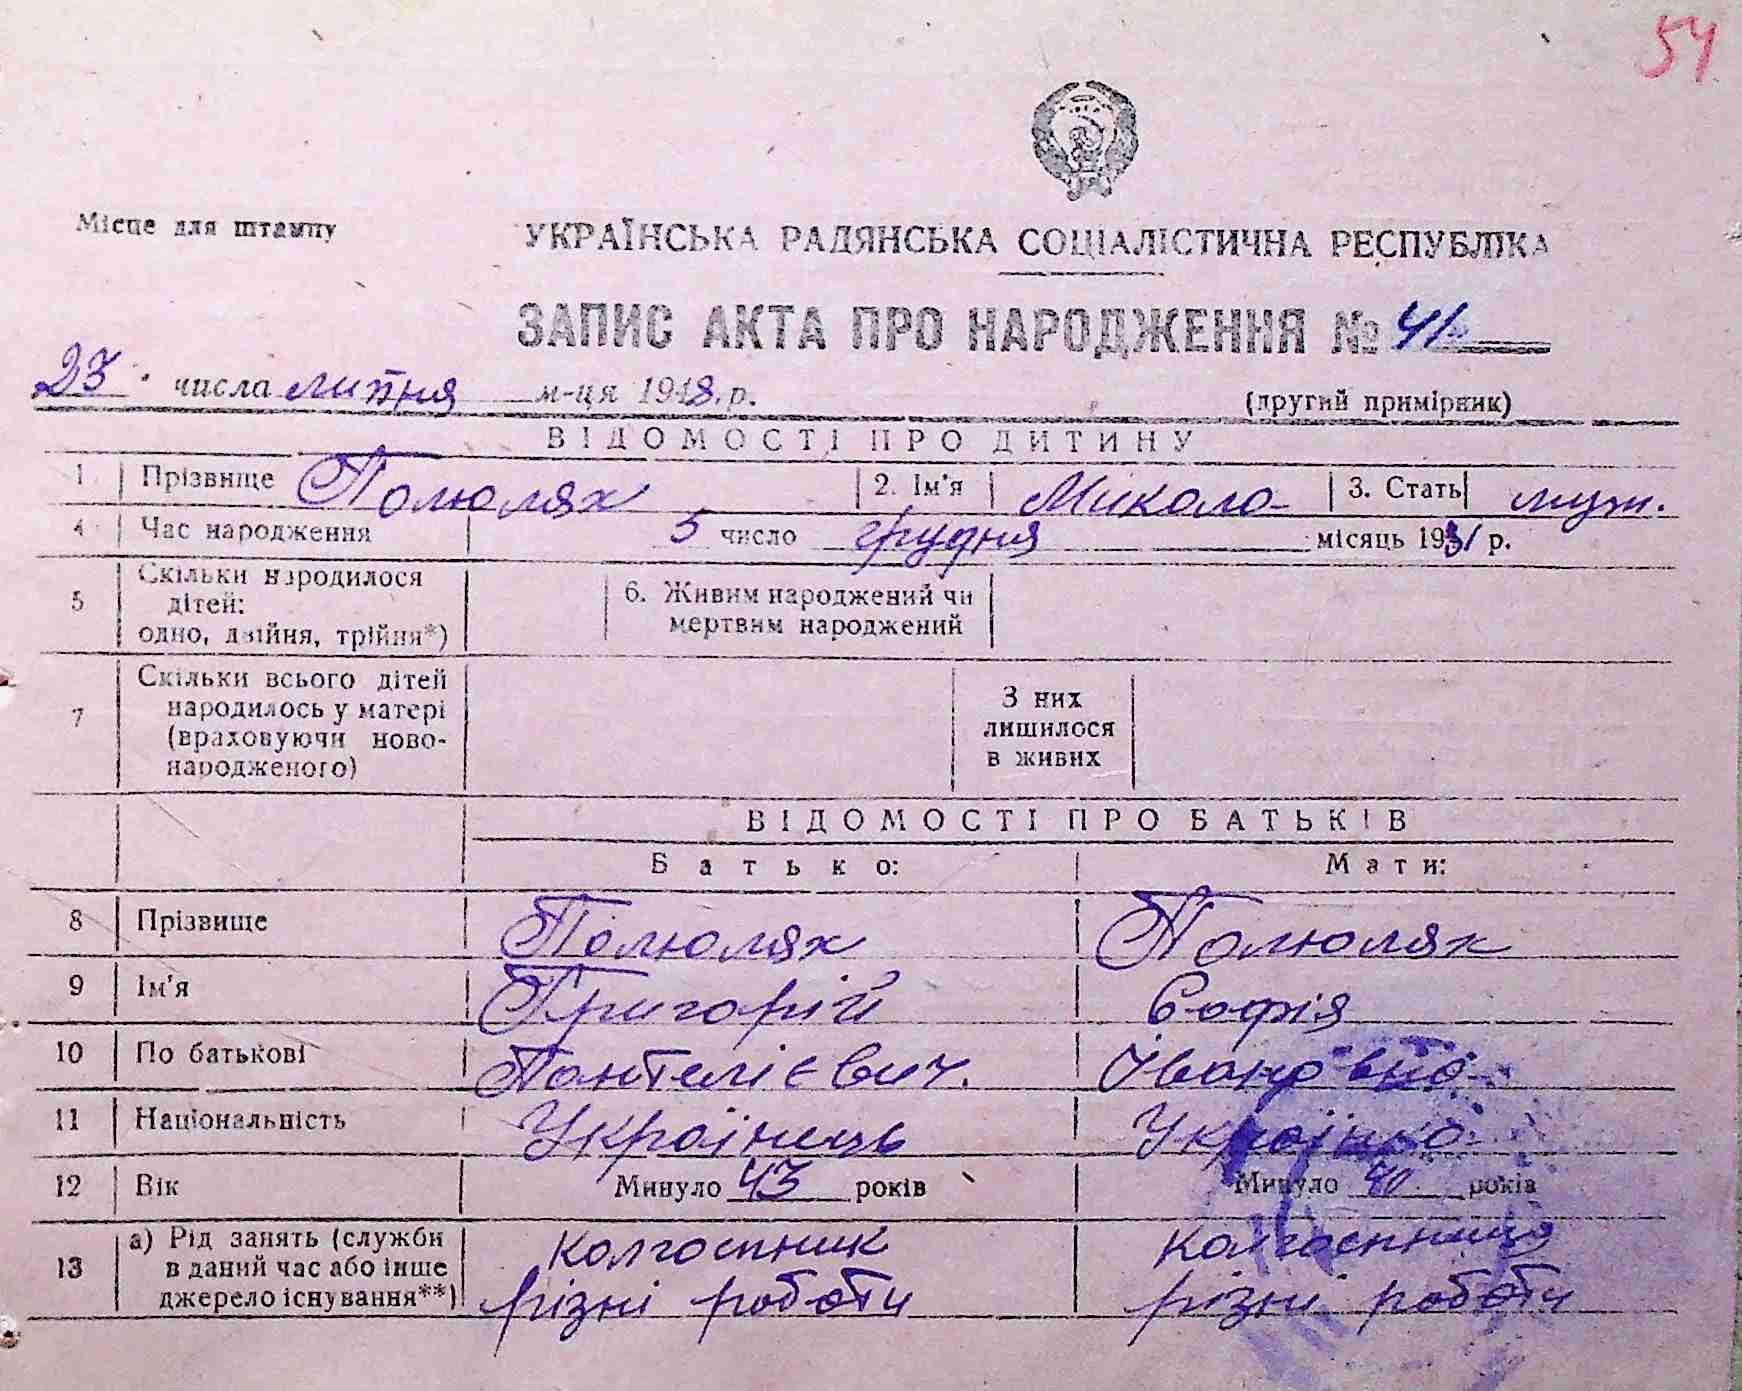 54
Місце для штампу
УКРАЇНСЬКА РАДЯНСЬКА СОЦІАЛІСТИЧНА РЕСПУБЛІКА
ЗАПИС АКТА ПРО НАРОДЖЕННЯ № 41
23 числа липня м-ця 1948. р.
(другий примірник)
ВІДОМОСТІ ПРО ДИТИНУ
1 Прізвище Полюлях 2. Ім'я Микола 3. Стать муж.
4 Час народження 5 число грудня місяць 1931 р.
5 Скільки народилося дітей: одно, двійня, трійня*) 6. Живим народжений чи мертвим народжений
7 Скільки всього дітей народилось у матері (враховуючи ново-народженого) З них лишилося в живих
ВІДОМОСТІ ПРО БАТЬКІВ
Батько: Мати:
8 Прізвище Полюлях Полюлях
9 Ім'я Григорій Софія
10 По батькові Пантелієвич. Івановна
11 Національність Українець Українка
12 Вік Минуло 43 років Минуло 40 років
13 а) Рід занять (служби в даний час або інше джерело існування**) колгоспник різні роботи колгоспниця різні роботи